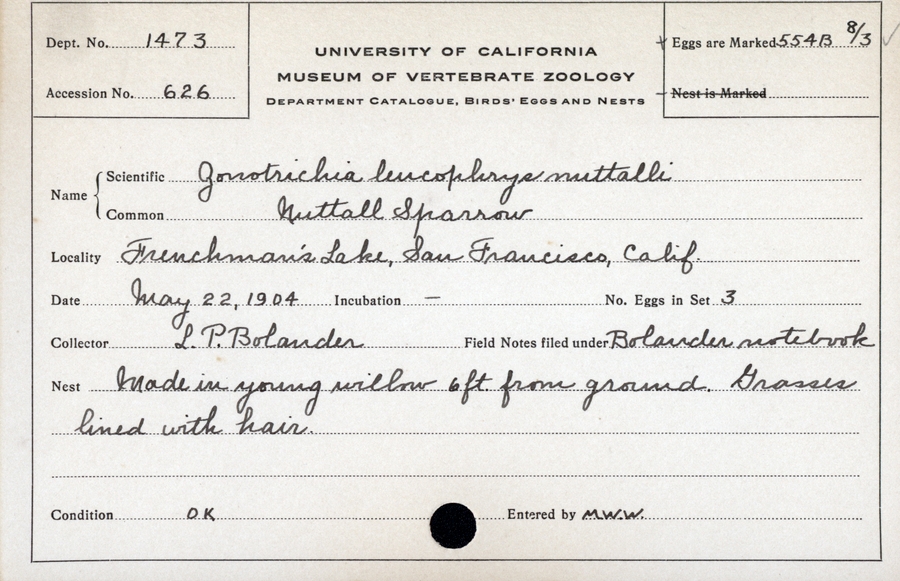 Dept. No. 1473
Accession No. 626
UNIVERSITY OF CALIFORNIA
MUSEUM OF VERTEBRATE ZOOLOGY
DEPARTMENT CATALOGUE, BIRDS' EGGS AND NESTS
Eggs are Marked 554B 8/3 ✓
Nest is Marked
Name
Scientific Zonotrichia leucophrys nuttalli
Common Nuttall Sparrow
Locality Frenchman's Lake, San Francisco, Calif.
Date May 22, 1904 Incubation — No. Eggs in Set 3
Collector L. P. Bolander Field Notes filed under Bolander notebook
Nest Made in young willow 6ft from ground. Grasses
lined with hair.
Condition OK Entered by M.W.W.